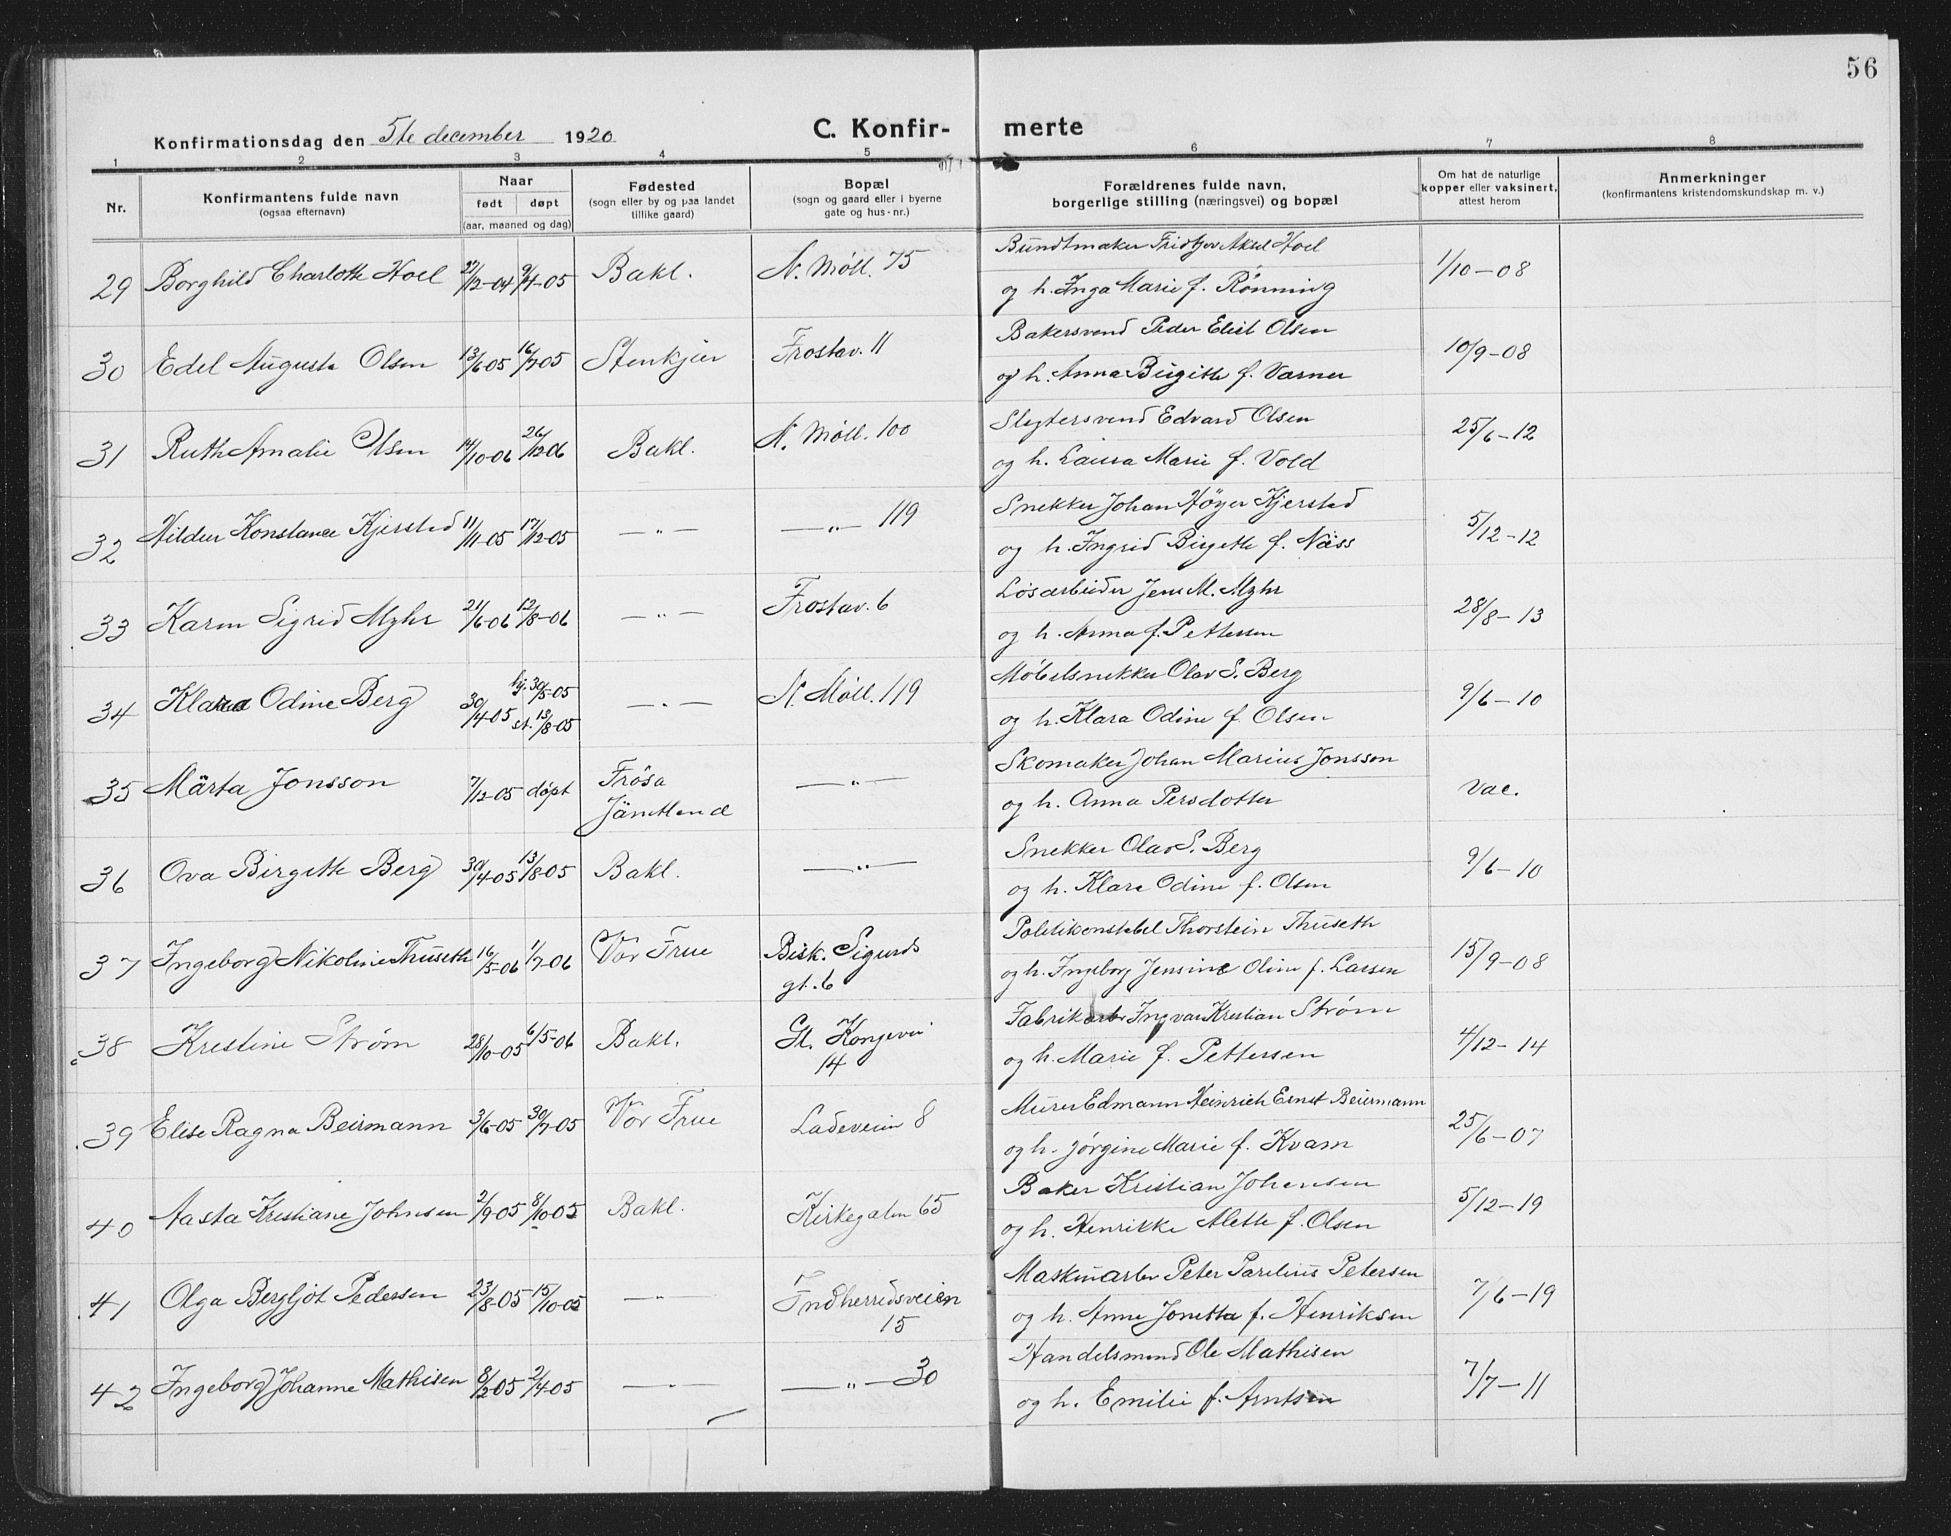 56
Konfirmationsdag den 5te december 1920
C. Konfir- merte
1 2 3 4 5 6 7 8
Nr.
Konfirmantens fulde navn
(ogsaa efternavn)
Naar
født døpt
(aar, maaned og dag)
Fødested
(sogn eller by og paa landet
tillike gaard)
Bopæl
(sogn og gaard eller i byerne
gate og hus-nr.)
Forældrenes fulde navn,
borgerlige stilling (næringsvei) og bopæl
Om hat de naturlige
kopper eller vaksinert,
attest herom
Anmerkninger
(konfirmantens kristendomskundskap m. v.)
Bundtmaker Fridtjov Aksel Hoel
29 Borghild Charlotte Hoel 27/12-04 9/4-05 Bakl. N. Møll. 75 1/10-08
og h. Inga Marie f. Rønning
Bakersvend Peder Elist Olsen
30 Edel Augusta Olsen 13/6-05 16/7-05 Stenkjer Frostav. 11 10/9-08
og h. Anna Birgitte f. Varner
Slegtersvend Edvard Olsen
31 Ruth Amalie Olsen 14/10-06 26/12-06 Bakl. N. Møll. 100 25/6-12
og h. Laura Marie f. Vold
Snekker Johan Höyer Kjersted
32 Hildur Konstance Kjersted 11/11-05 17/12-05 — „ — — „ — 119 5/12-12
og h. Ingrid Birgette f. Næss
Løsarbeider Jens M. Myhr
33 Karen Sigrid Myhr 21/6-06 12/8-06 — „ — Frostav. 6 28/8-13
og h. Anna f. Pettersen
Møbelsnekker Olav S. Berg
34 Klara Odine Berg 30/4-05 hj. 30/5-05 st. 13/8-05 — „ — N. Møll. 119 9/6-10
og h. Klara Odine f. Olsen
Skomaker Johan Marius Jonsson
35 Märta Jonsson 7/12-05 døpt Frösa Jämtland — „ — Vac.
og h. Anna Persdotter
Snekker Olav S. Berg
36 Ova Birgitte Berg 30/4-05 13/8-05 Bakl. — „ — 9/6-10
og h. Klara Odine f. Olsen
Politikonstabel Thorstein Thuseth
37 Ingeborg Nikoline Thuseth 16/5-06 1/7-06 Vor Frue Bisk. Sigurds gt. 6 15/9-08
og h. Ingeborg Jensine Oline f. Larsen
Fabrikarb. Ingvar Kristian Strøm
38 Kristine Strøm 28/10-05 6/5-06 Bakl. Gl. Kongevei 14 4/12-14
og h. Marie f. Pettersen
Murer Edmann Heinrich Ernst Beiermann
39 Elise Ragna Beirmann 3/6-05 30/7-05 Vor Frue Ladeveien 8 25/6-07
og h. Jørgine Marie f. Kvam
Baker Kristian Johansen
40 Aasta Kristiane Johnsen 2/9-05 8/10-05 Bakl. Kirkegaten 65 5/12-19
og h. Henrikke Alette f. Olsen
Maskinarbr Peter Parelius Petersen
41 Olga Bergljot Pedersen 23/8-05 15/10-05 — „ — Indherredsveien 15 7/6-19
og h. Anne Jonetta f. Henriksen
Handelsmand Ole Mathisen
42 Ingeborg Johanne Mathisen 8/2-05 2/4-05 — „ — — „ — 30 7/7-11
og h. Emilie f. Arntsen